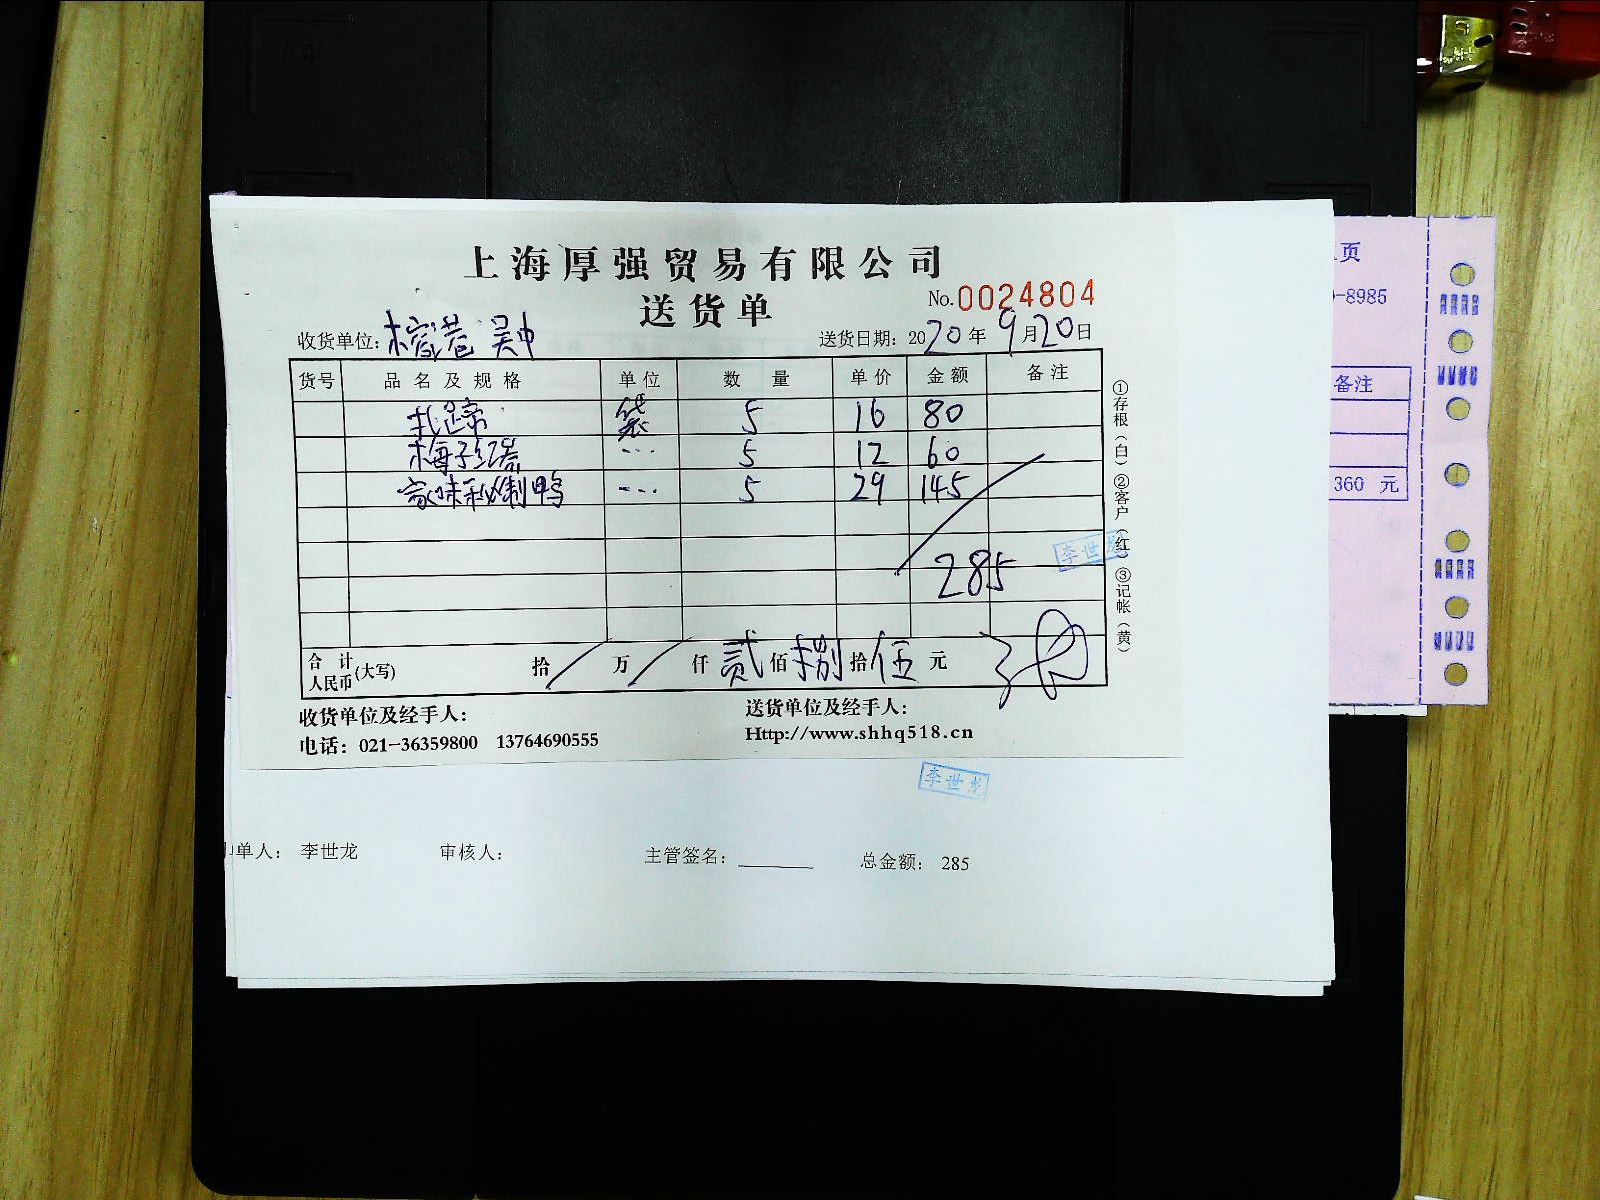 上海厚强贸易有限公司
送货单
No.0024804
收货单位: 榕港 吴中
送货日期: 2020年9月20日
货号 品名及规格 单位 数量 单价 金额 备注
扎蹄 袋 5 16 80
梅子红 5 12 60
家味秘制鸭 5 29 145
285
合计人民币(大写) 拾/万/仟贰佰捌拾伍元
收货单位及经手人:
送货单位及经手人:
电话: 021-36359800 13764690555
Http://www.shhq518.cn
①存根(白)②客户(红)③记帐(黄)
李世龙
李世龙
单人: 李世龙 审核人: 主管签名: 总金额: 285
页
-8985
备注
360 元